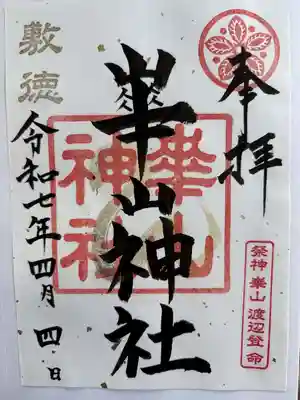 奉拝
祭神 崋山 渡辺登命
崋山神社
崋山
神社
敷徳
令和七年四月四日